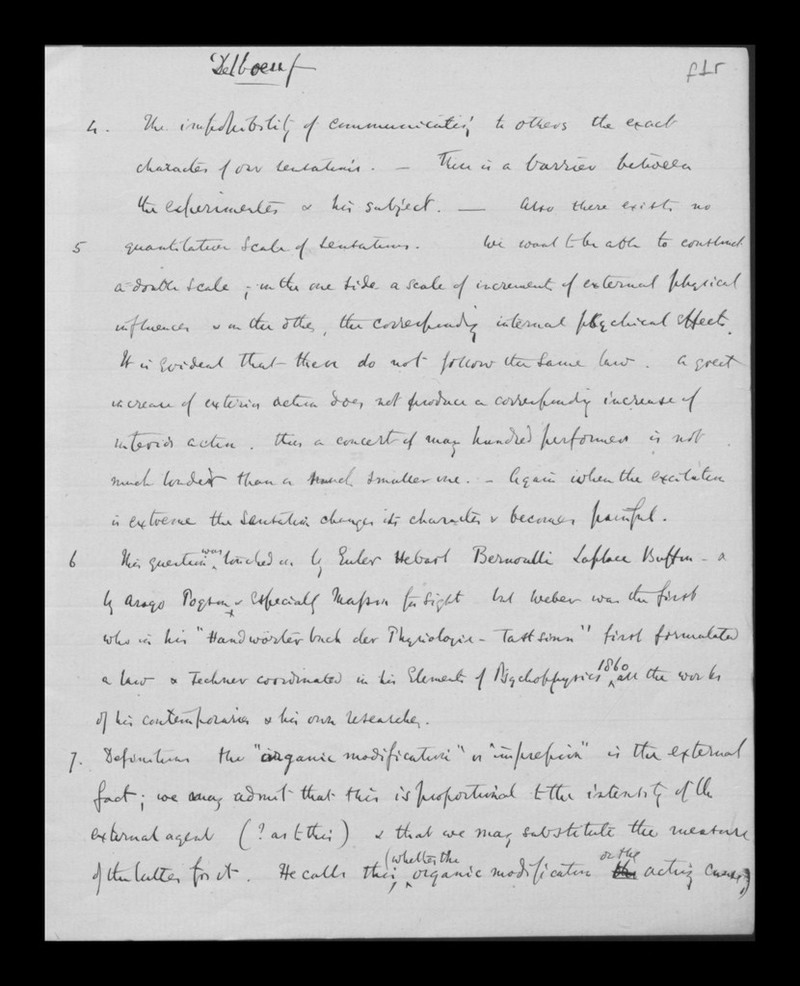 Delboeuf
f15
4. The impossibility of communicating to others the exact
character of our sensations. — There is a barrier between
the experimenter & his subject. — Also there exists no
5 quantitative scale of sensations. We want to be able to construct
a double scale; on the one side a scale of increments of external physical
influences & on the other, the corresponding internal psychical effects.
It is evident that these do not follow the same law. A great
increase of exterior action does not produce a corresponding increase of
interior action. thus a concert of many hundred performers is not
much louder than a much smaller one. – Again when the excitation
is extreme the sensation changes its character & becomes painful.
6 This question was touched on by Euler Herbart Bernoulli Laplace Buffon – &
by Arago Pogson & especially Masson for sight but Weber was the first
who in his "Handwörterbuch der Physiologie – Tastsinn" first formulated
a law & Fechner coordinated in his Elements of Psychophysics 1860 all the works
of his contemporaries & his own researches.
7. Definitions the "organic modification" or "impression" is the external
fact; we may admit that this is proportional to the intensity of the
external agent (? as to this) & that we may substitute the measure
of the latter for it. He calls this, (whether the organic modification or the acting cause)